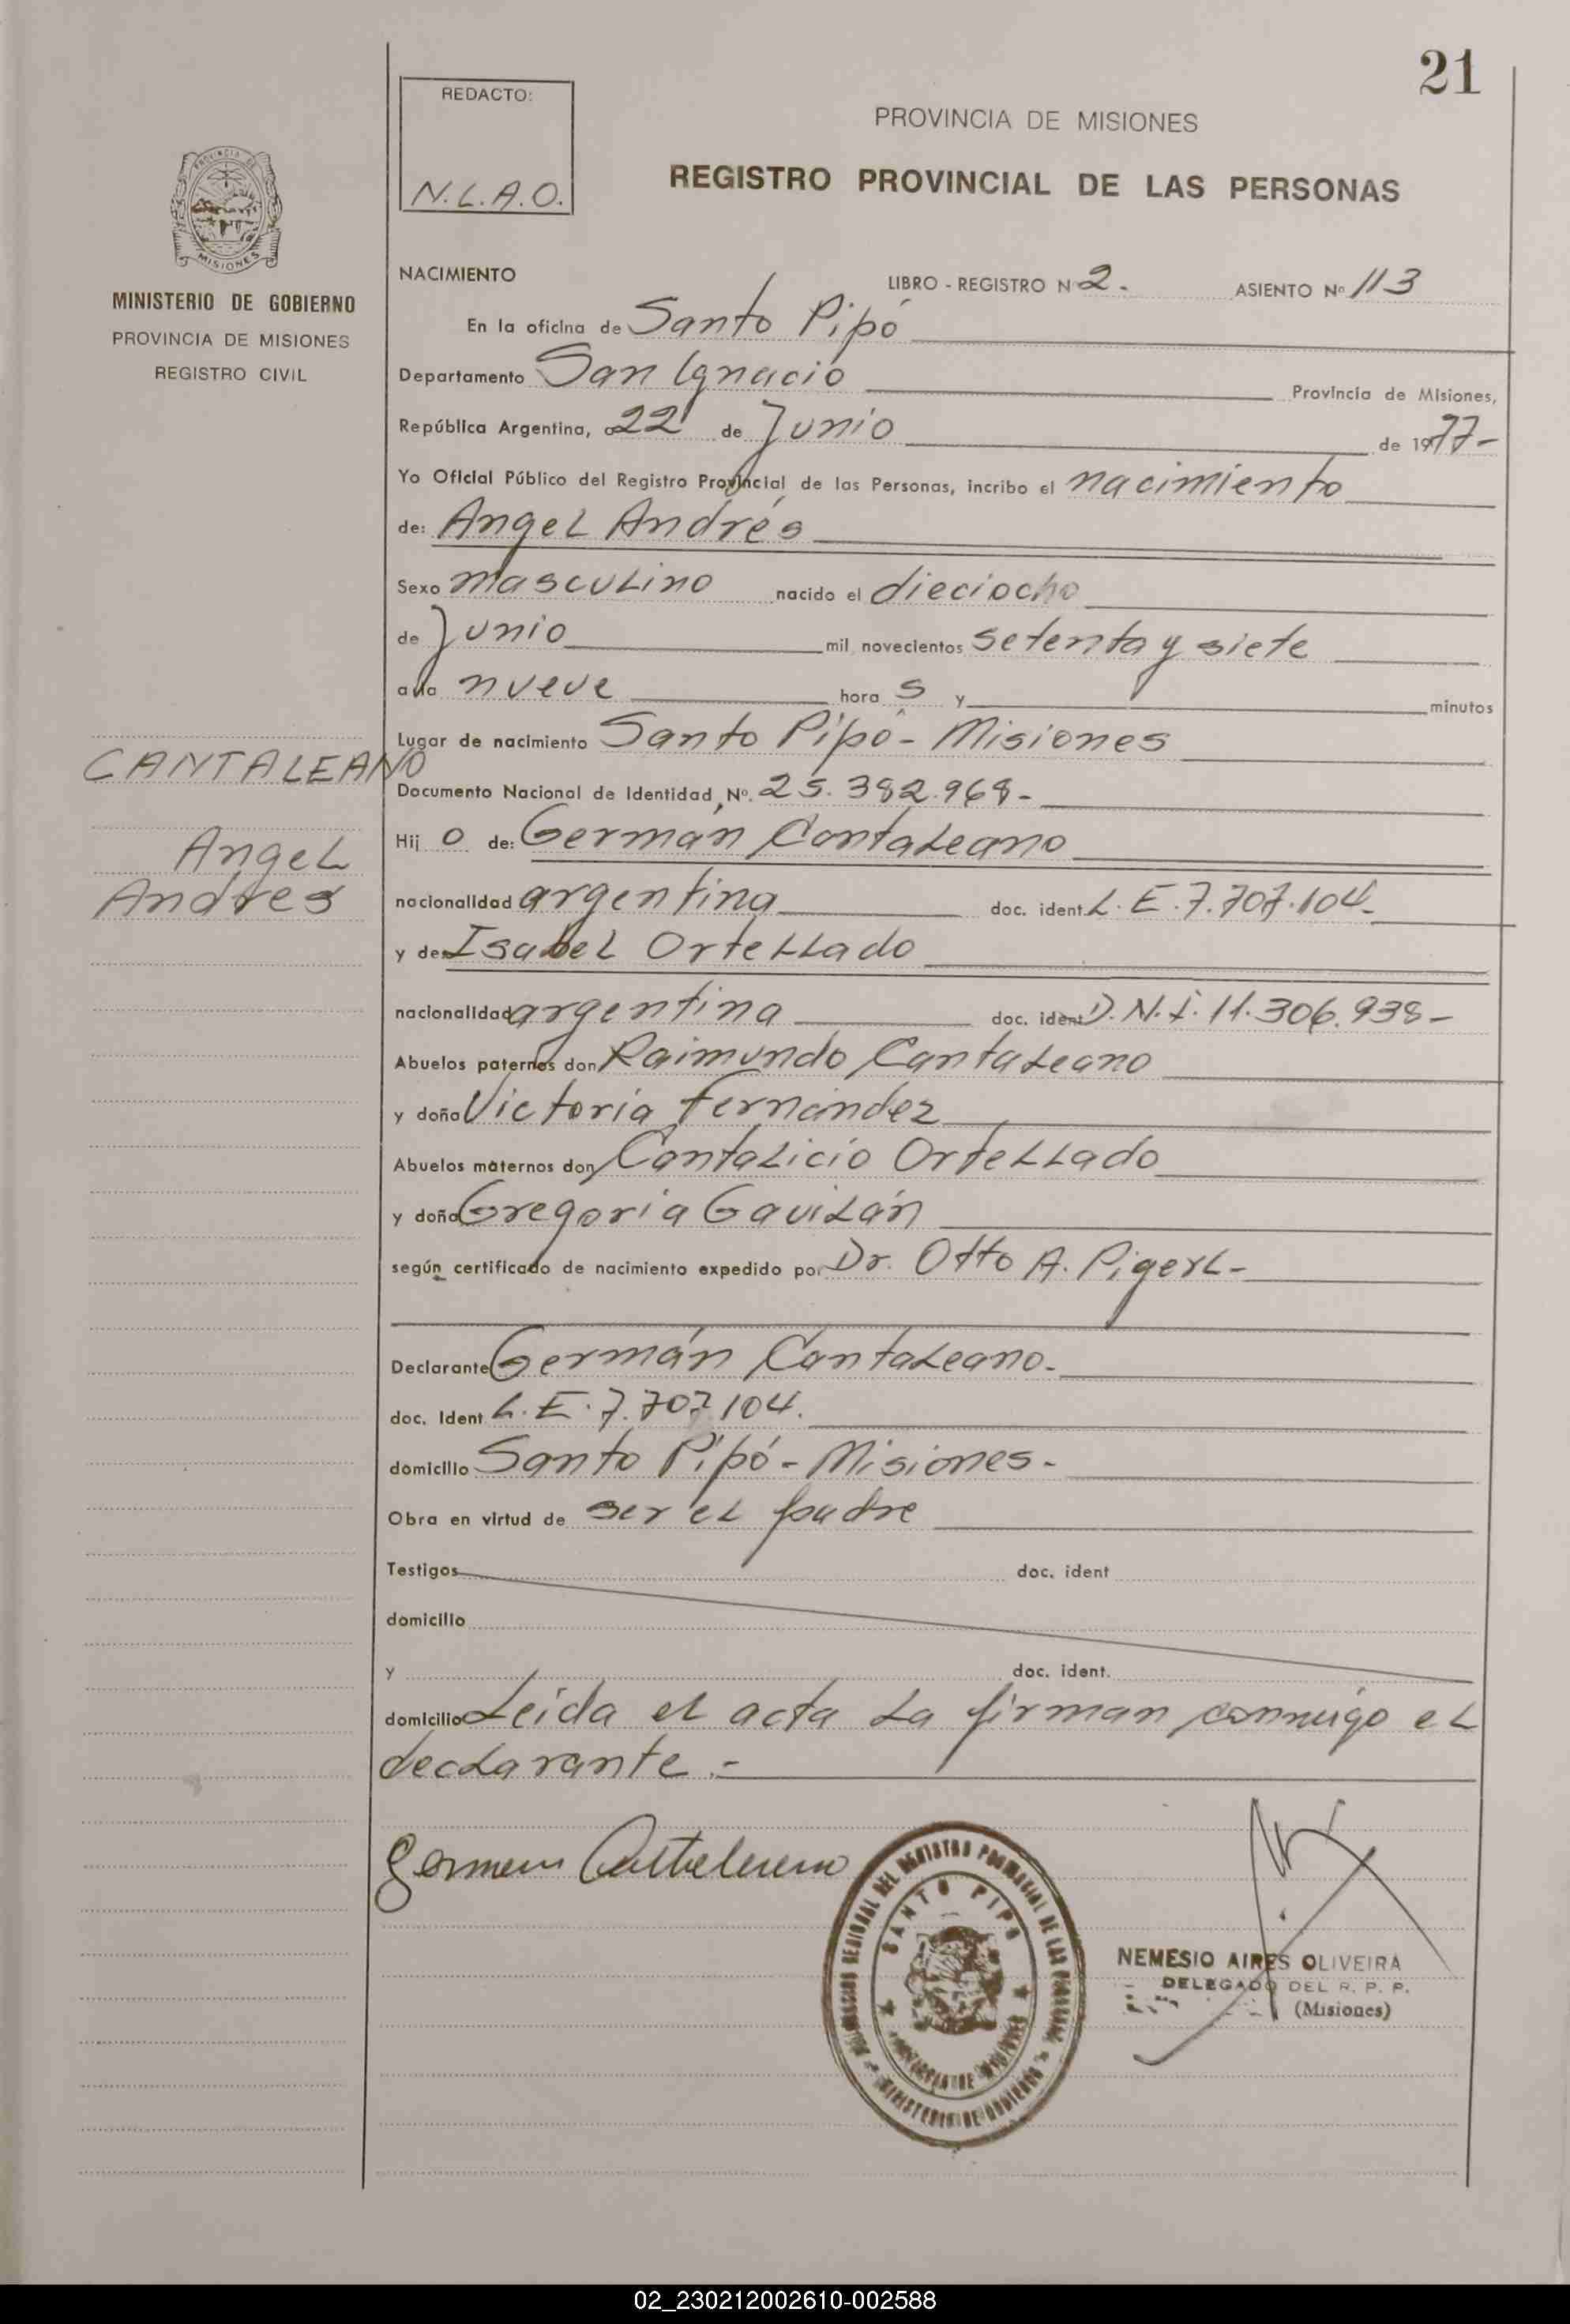 21
REDACTO:
N.L.A.O.
PROVINCIA DE MISIONES
REGISTRO PROVINCIAL DE LAS PERSONAS
PROVINCIA DE
MISIONES
MINISTERIO DE GOBIERNO
PROVINCIA DE MISIONES
REGISTRO CIVIL
NACIMIENTO LIBRO - REGISTRO N 2. ASIENTO Nº 113
En la oficina de Santo Pipó
Departamento San Ignacio Provincia de Misiones,
República Argentina, a 22 de Junio de 1977-
Yo Oficial Público del Registro Provincial de las Personas, incribo el nacimiento
de: Angel Andrés
Sexo masculino nacido el dieciocho
de Junio mil novecientos setenta y siete
a la nueve hora s y minutos
Lugar de nacimiento Santo Pipó - Misiones
CANTALEANO
Angel
Andres
Documento Nacional de Identidad Nº. 25.382.968-
Hij o de: Germán Cantaleano
nacionalidad argentina doc. ident. L.E. 7.707.104-
y de Isabel Ortellado
nacionalidad argentina doc. ident D.N.I. 11.306.938-
Abuelos paternos don Raimundo Cantaleano
y doña Victoria Fernández
Abuelos maternos don Cantalicio Ortellado
y doña Gregoria Gavilán
según certificado de nacimiento expedido por Dr. Otto A. Pigerl-
Declarante Germán Cantaleano.
doc. Ident L.E. 7.707.104.
domicilio Santo Pipó - Misiones.
Obra en virtud de ser el padre
Testigos doc. ident
domicilio
y doc. ident.
domicilio Leida el acta la firman conmigo el
declarante.-
German Cantaleano
DEL REGISTRO PROVINCIAL DE LAS PERSONAS
SANTO PIPO
MINISTERIO DE GOBIERNO
NEMESIO AIRES OLIVEIRA
DELEGADO DEL R. P. P.
(Misiones)
02_230212002610-002588